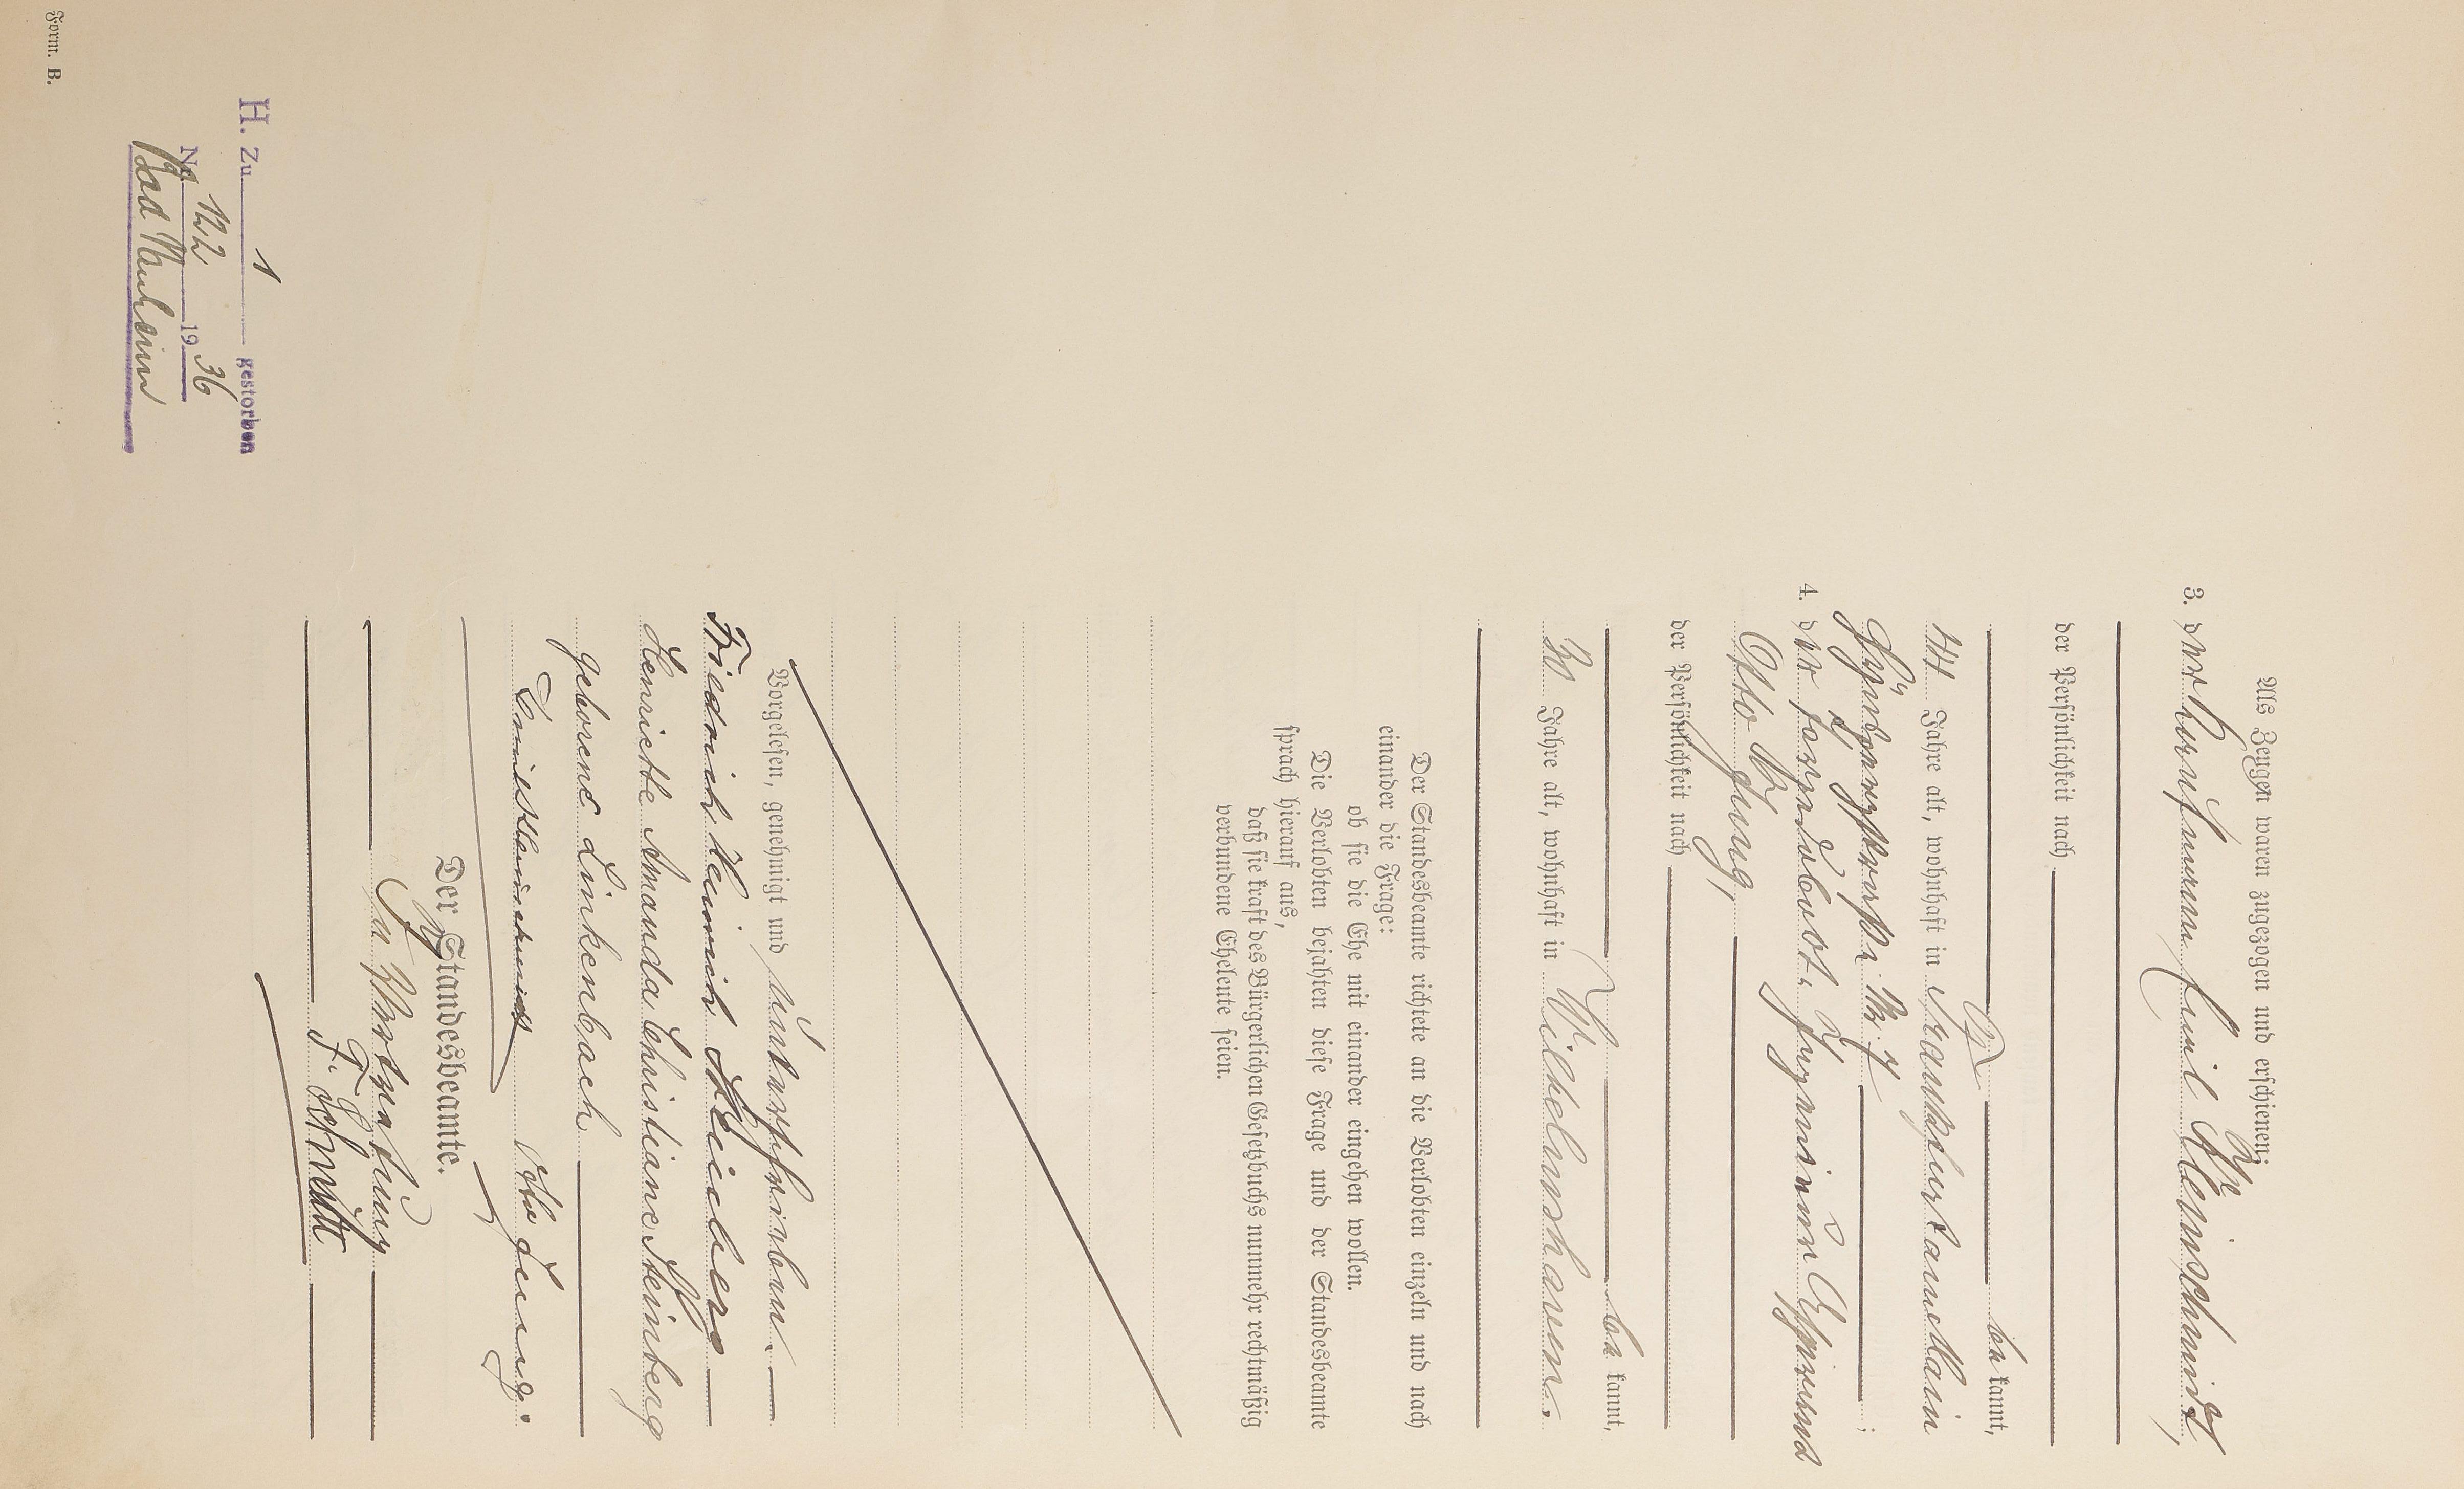 Als Zeugen waren zugezogen und erschienen:
3. der Kaufmann Emil Kleinschmidt,
der Persönlichkeit nach
be kannt,
44 Jahre alt, wohnhaft in Frankfurt am Main
4. der
Otto Jung,
der Persönlichkeit nach
be kannt,
30 Jahre alt, wohnhaft in Wilhelmshaven.
Der Standesbeamte richtete an die Verlobten einzeln und nach
einander die Frage:
ob sie die Ehe mit einander eingehen wollen.
Die Verlobten bejahten diese Frage und der Standesbeamte
sprach hierauf aus,
daß sie kraft des Bürgerlichen Gesetzbuchs nunmehr rechtmäßig
verbundene Eheleute seien.
Vorgelesen, genehmigt und unterschrieben.
Friedrich Heinrich Steinberg
Henriette Amanda Christiane Steinberg
geborene Linkenbach
Emil Kleinschmidt Otto Jung.
Der Standesbeamte.
In Vertretung
F. Schmitt
H. Zu 1 gestorben
No 122 1936
Bad Nauheim
Form. B.